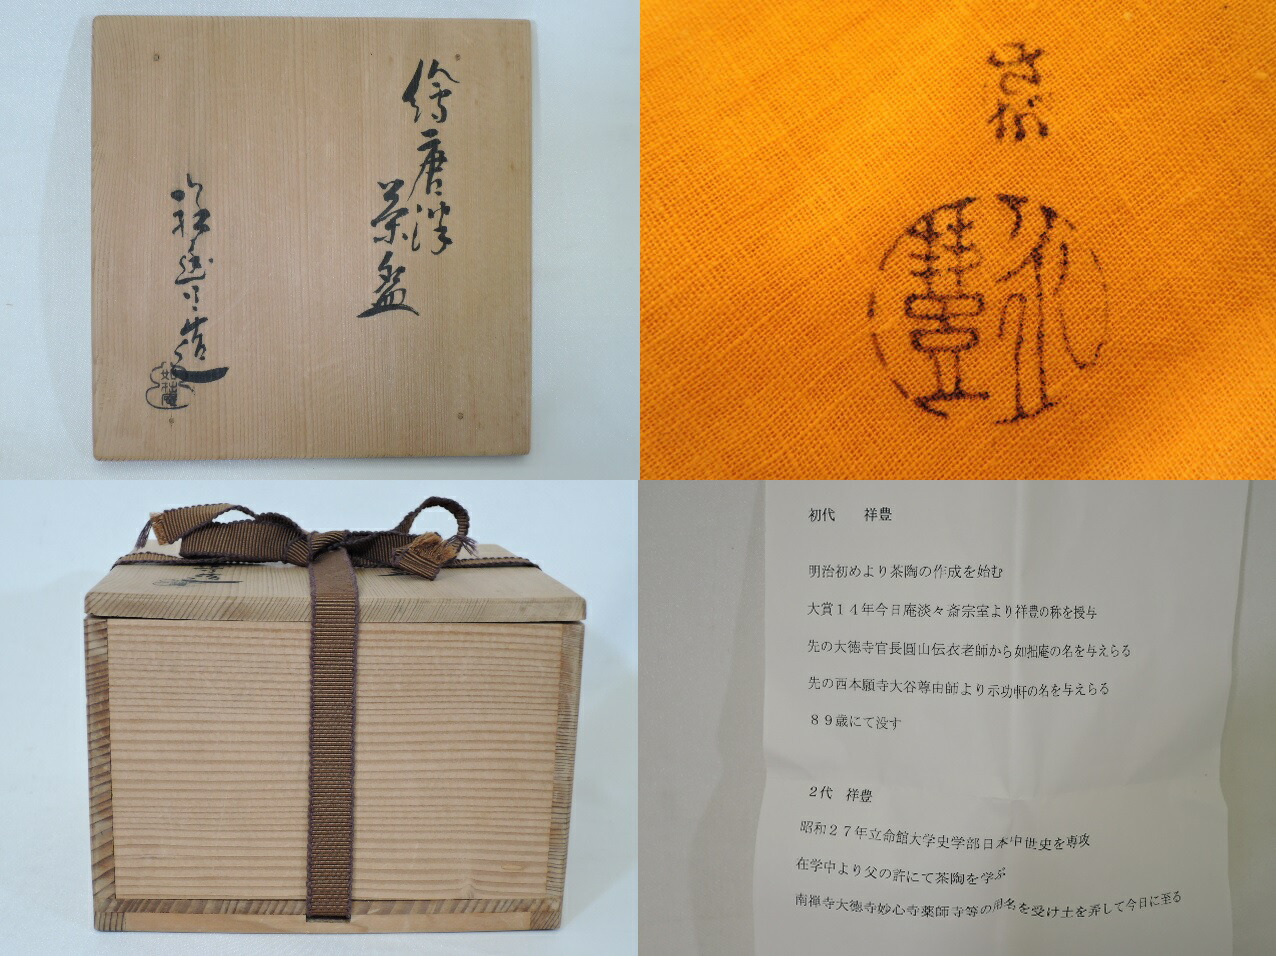 繪唐津
茶盌
造
如拙庵
さが
祥豊
初代　祥豊
明治初めより茶陶の作成を始む
大賞１４年今日庵淡々斎宗室より祥豊の称を授与
先の大徳寺官長圓山伝衣老師から如拙庵の名を与えらる
先の西本願寺大谷尊由師より示功軒の名を与えらる
８９歳にて没す
２代　祥豊
昭和２７年立命館大学史学部日本中世史を専攻
在学中より父の許にて茶陶を学ぶ
南禅寺大徳寺妙心寺薬師寺等の用名を受け土を弄して今日に至る